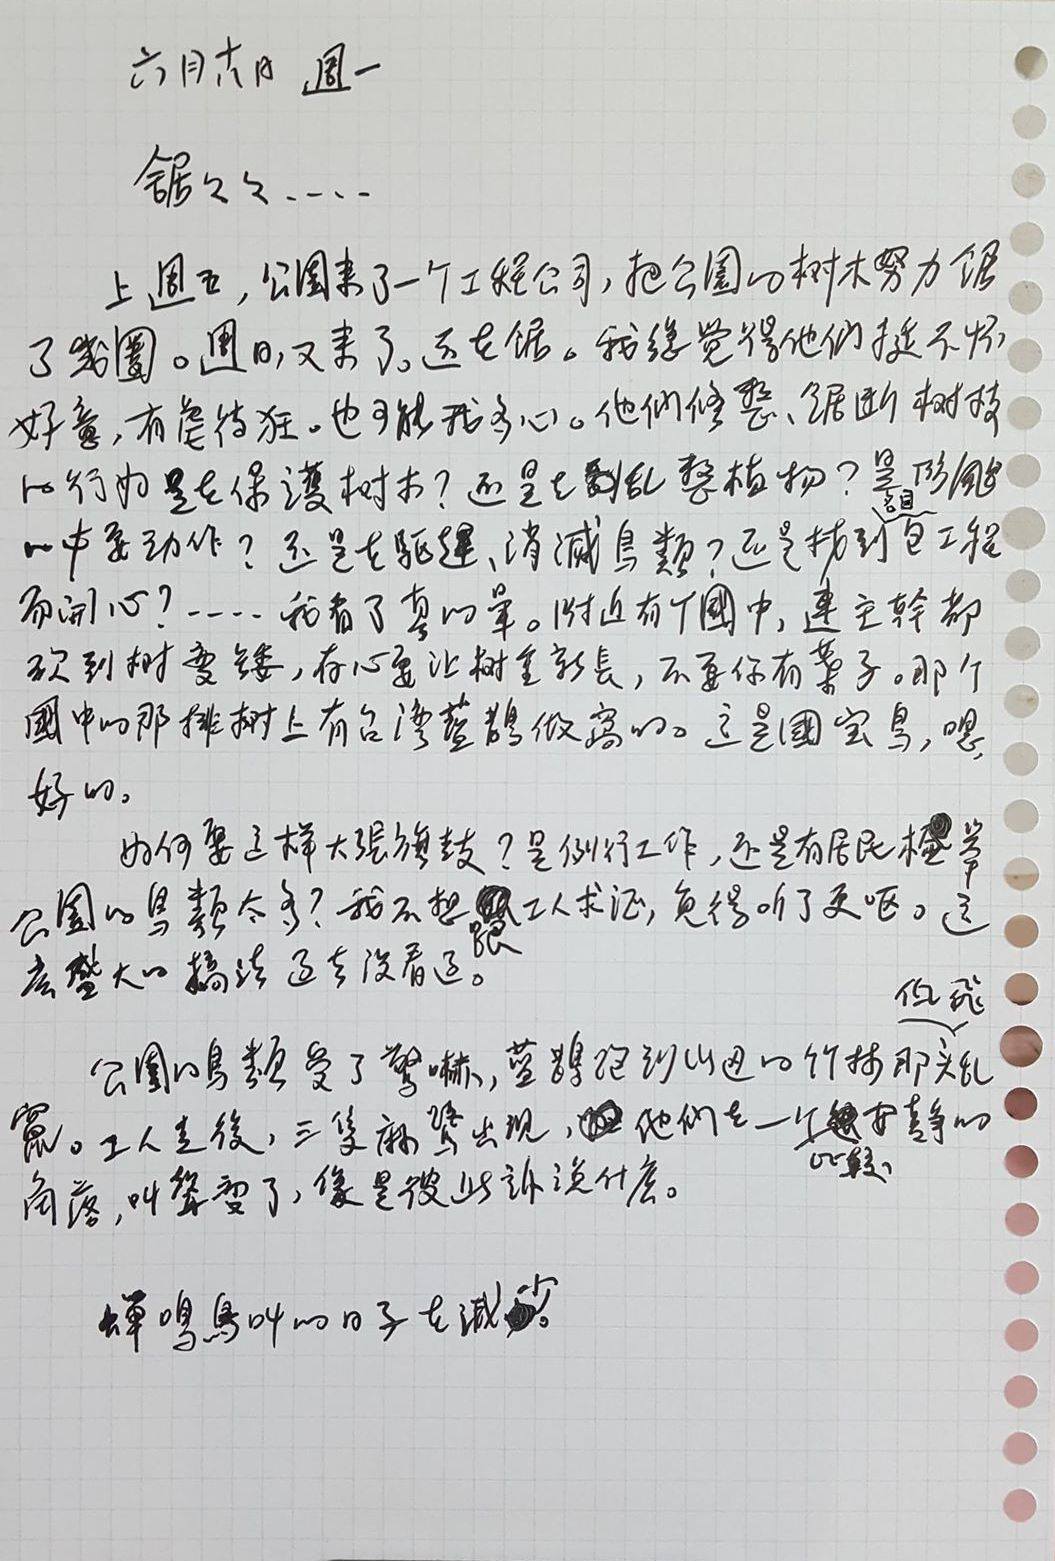 六月十六日 週一
鋸々々.....
上週五,公園来了一个工程公司,把公園的树木努力鋸
了幾圈。週日,又来了。还在鋸。我總覺得他們挺不怀
好意,有虐待狂。也可能我多心。他們修整、鋸断树枝
的行為是在保護树木?还是在亂整植物?是防颱
的中要动作?还是在驅趕、消滅鳥類?还是找到包工程
項目
而開心?.... 我看了真的暈。附近有个國中,連主幹都
砍到树變矮,存心要让树重新長,不要你有葉子。那个
國中的那排树上有台湾藍鵲做窩的。這是國宝鳥,嗯,
好的。
如何要這样大張旗鼓?是例行工作,还是有居民檢举
公園的鳥類太多?我不想跟工人求证,免得听了更呕。這
么盛大的搞法过去没看过。
公園的鳥類受了驚嚇,藍鵲跑到山边的竹林那头低飛亂
竄。工人走後,三隻麻鷺出现,他們在一个比較安靜的
角落,叫聲变了,像是彼此訴说什麼。
蟬鳴鳥叫的日子在減少。